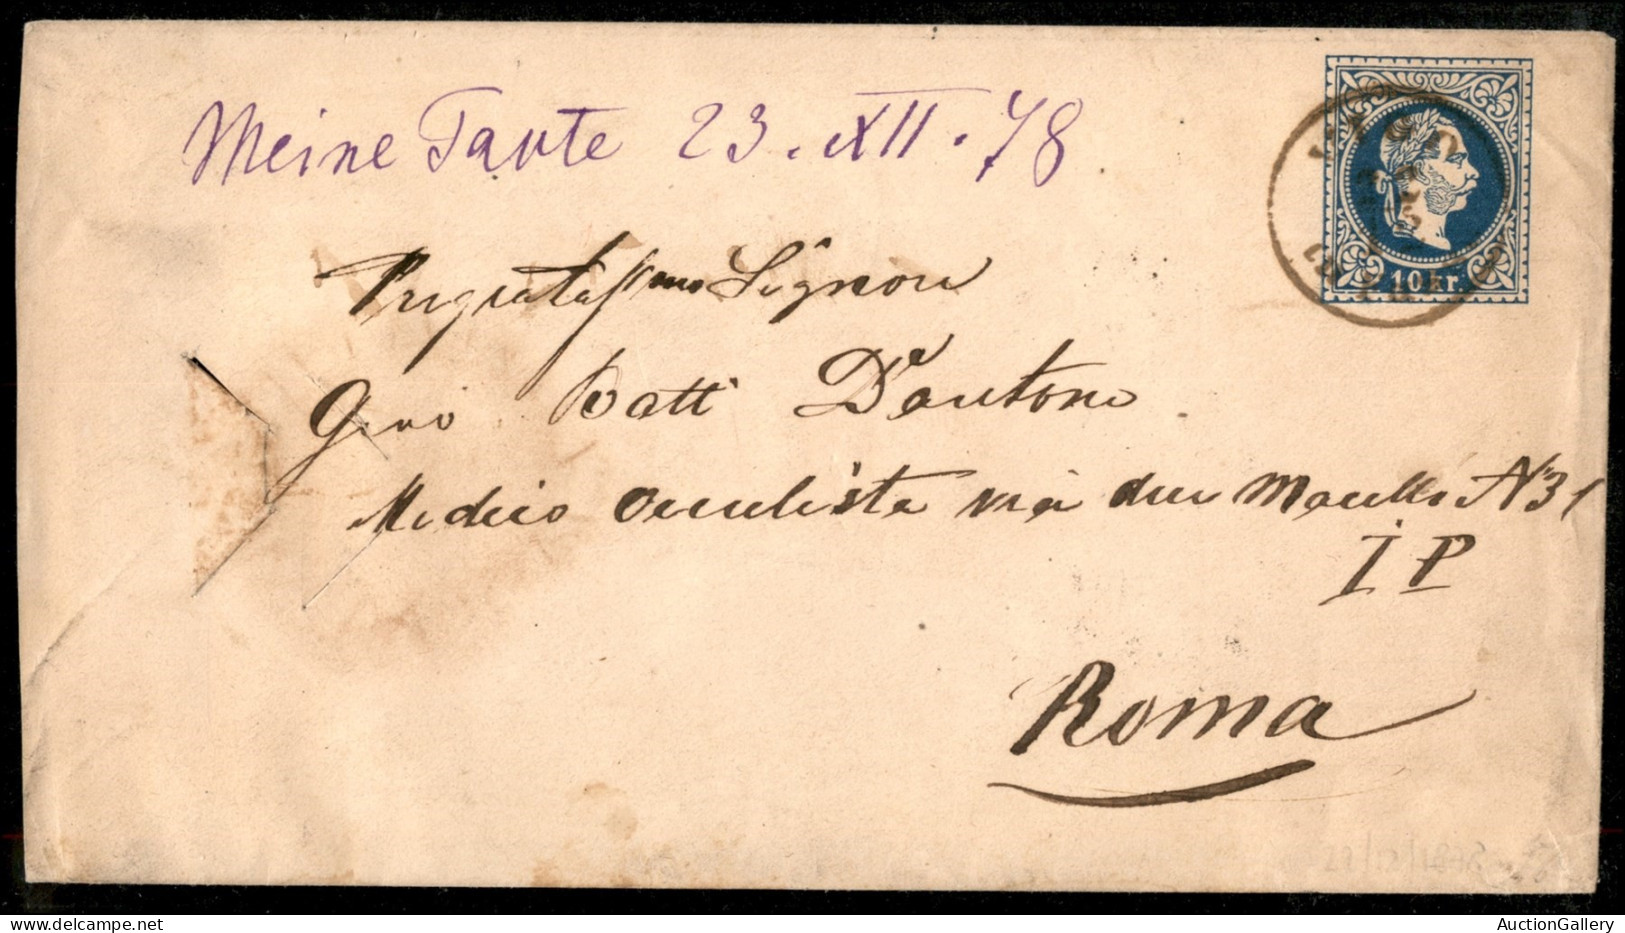 Meine Tante 23. XII. 78
10 kr.
VIGO
Pregiatassmo Signore
Gio Batt D'Antoni
Medico occuliste via due Macelli N 31
I P
Roma
AuctionGallery